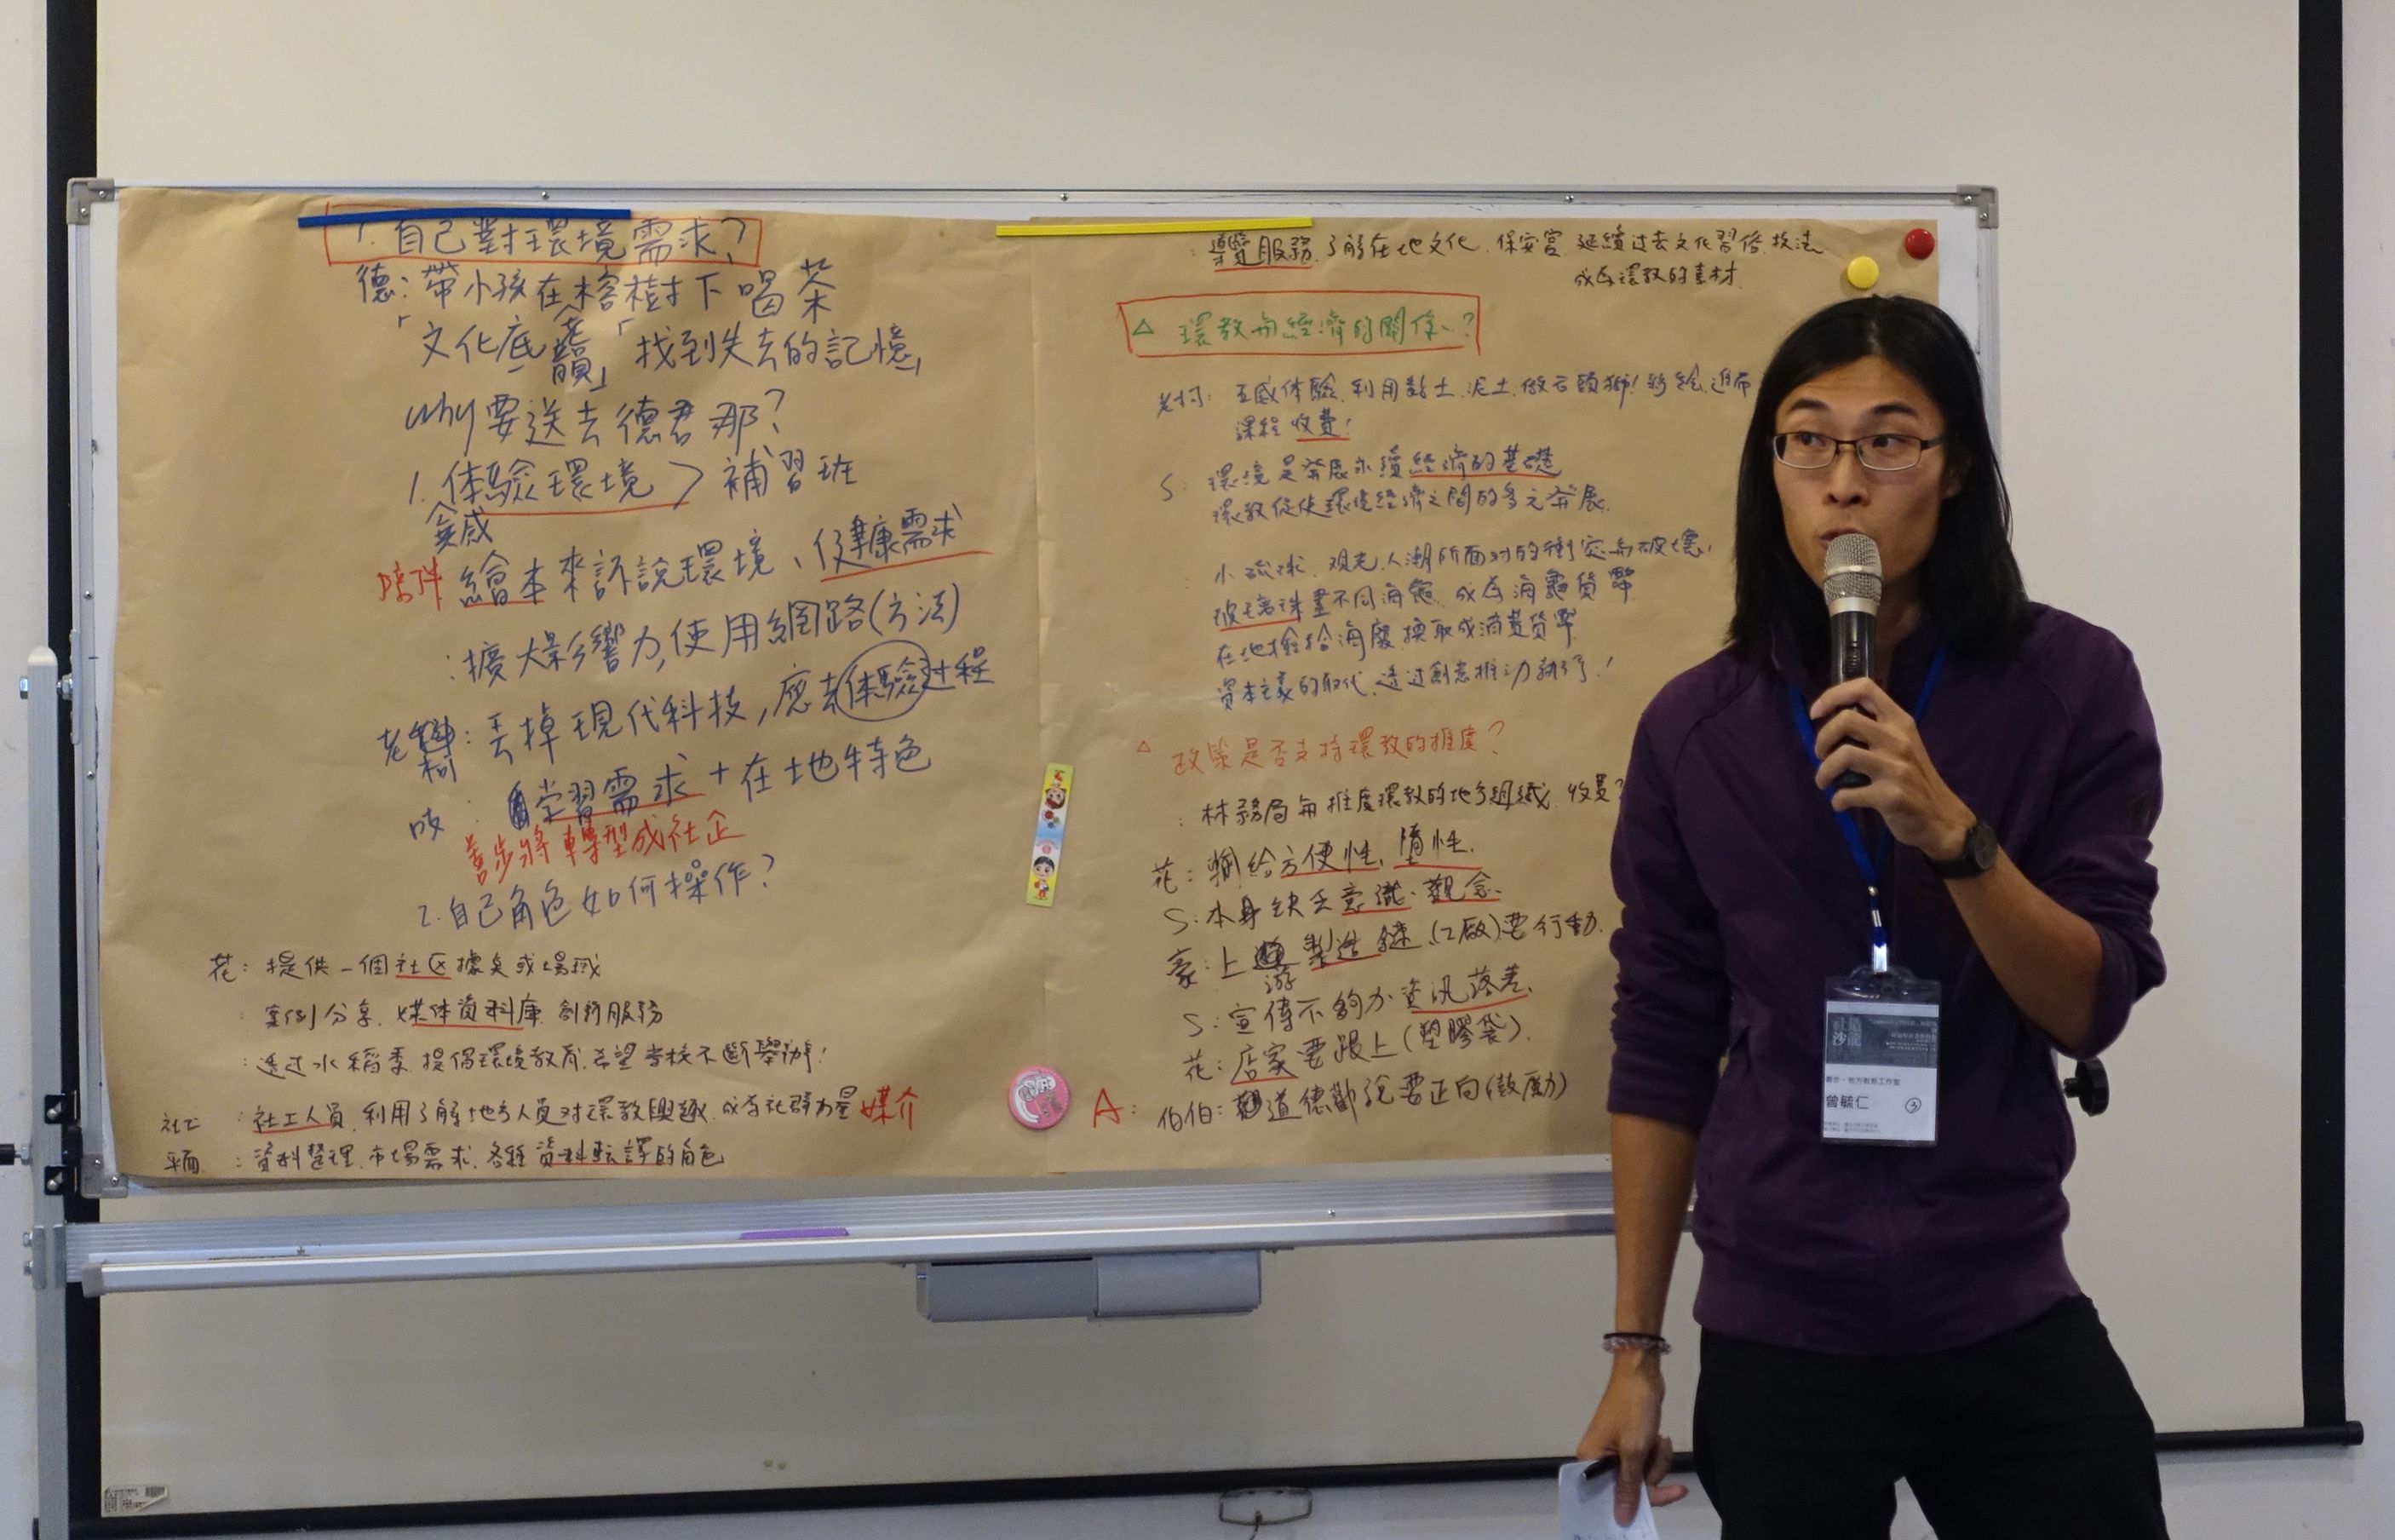 1. 自己對環境需求?
德: 帶小孩在榕樹下喝茶
「文化底蘊」「找到失去的記憶」
Why要送去德君那?
1. 体驗環境 > 補習班
繪本來訴說環境、健康需求
: 擴大影響力,使用網路(方法)
老柯: 丟掉現代科技,應去体驗过程
學習需求+在地特色
善步將轉型成社企
2. 自己角色如何操作?
花: 提供一個社区據点或場域
: 案例分享. 媒体資料庫. 創新服務
: 透过水稻季. 提倡環境教育. 希望學校不斷舉辦!
社工 : 社工人員. 利用了解地方人員对環教興趣. 成为社群力量 媒介
: 資料整理. 市場需求. 各種資料転譯的角色
: 導覽服務. 了解在地文化. 保安宮 延續过去文化習俗.技法
成为環教的素材.
△ 環教与經濟的關係?
老柯: 五感体驗.利用黏土.泥土.做石頭獅!彩繪.進而
課程收費!
S: 環境是發展永續經濟的基礎
環教促使環境經濟之間的多元發展.
: 小琉球. 观光人潮所面対的衝突与破壞!
玻璃珠畫不同海龜. 成为海龜貨幣
在地撿拾海廢.換取成消費貨幣
資本主義的取代. 透过創意推动執行!
△ 政策是否支持環教的推廣?
: 林務局与推廣環教的地方組織. 收費?
花: 輸給方便性. 惰性.
S: 本身缺乏意識.觀念.
豪: 上游製造鏈.(工廠)要行動.
S: 宣傳不夠力 資訊落差.
花: 店家要跟上(塑膠袋).
A: 伯伯: 道德勸說要正向(鼓勵)
社造
沙龍
善步・地方教育工作室
曾毓仁 3